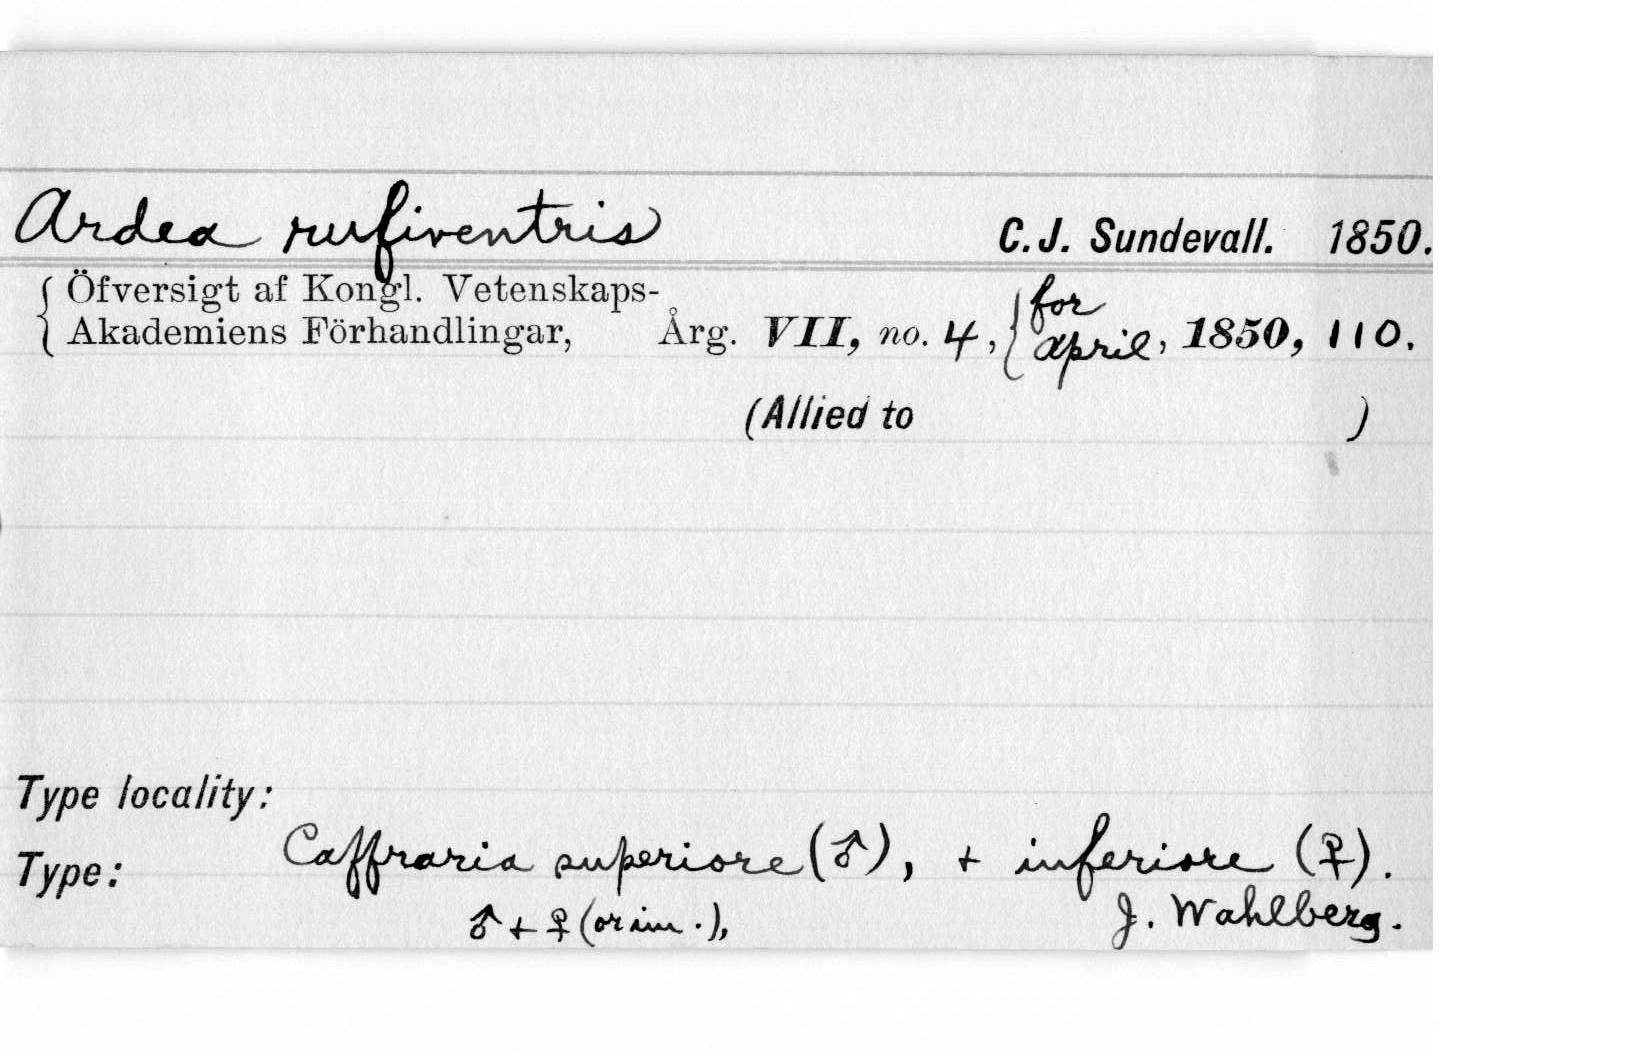 Ardea rufiventris C. J. Sundevall. 1850.
Öfversigt af Kongl. Vetenskaps-
Akademiens Förhandlingar, Årg. VII, no. 4, for april, 1850, 110.
(Allied to )
Type locality:
Caffraria superiore (♂), + inferiore (♀).
Type:
♂ + ♀ (or im.), J. Wahlberg.